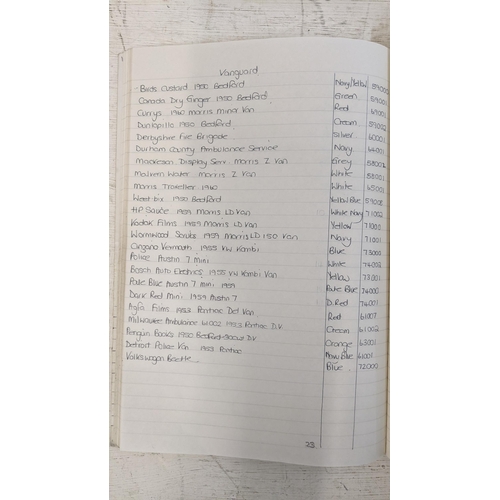 Vanguard
- Birds Custard 1950 Bedford Navy/Yellow 59000
Canada Dry Ginger 1950 Bedford Green 59001
Currys 1960 Morris Minor Van Red
Dunlopillo 1950 Bedford Cream 59002
Derbyshire Fire Brigade Silver 60001
Durham County Ambulance Service Navy
Display Serv. Morris Z Van Grey 58002
Malvern Water Morris Z Van White 58001
Morris Traveller 1960 White 65001
Weet bix 1950 Bedford Yellow Blue 59005
HP Sauce 1959 Morris LD Van White Navy 71002
Kodak Films 1959 Morris LD Van Yellow 71000
Wormwood Scrubs 1959 Morris LD 150 Van Navy 71001
Cinzano Vermouth 1955 VW Kombi Blue 73000
Police Austin 7 Mini White 74002
Bosch Auto Electrics 1955 VW Kombi Van Yellow 73001
Pale Blue Austin 7 Mini 1959 Pale Blue 74000
Dark Red Mini 1959 Austin 7 D.Red 74001
Agfa Films 1953 Pontiac Del Van Red 61007
Milwaukee Ambulance 61002 1953 Pontiac D.V Cream 61002
Penguin Books 1950 Bedford D.V Orange 63001
Detroit Police Van 1953 Pontiac Navy Blue 61001
Volkswagen Beetle Blue 72000
23